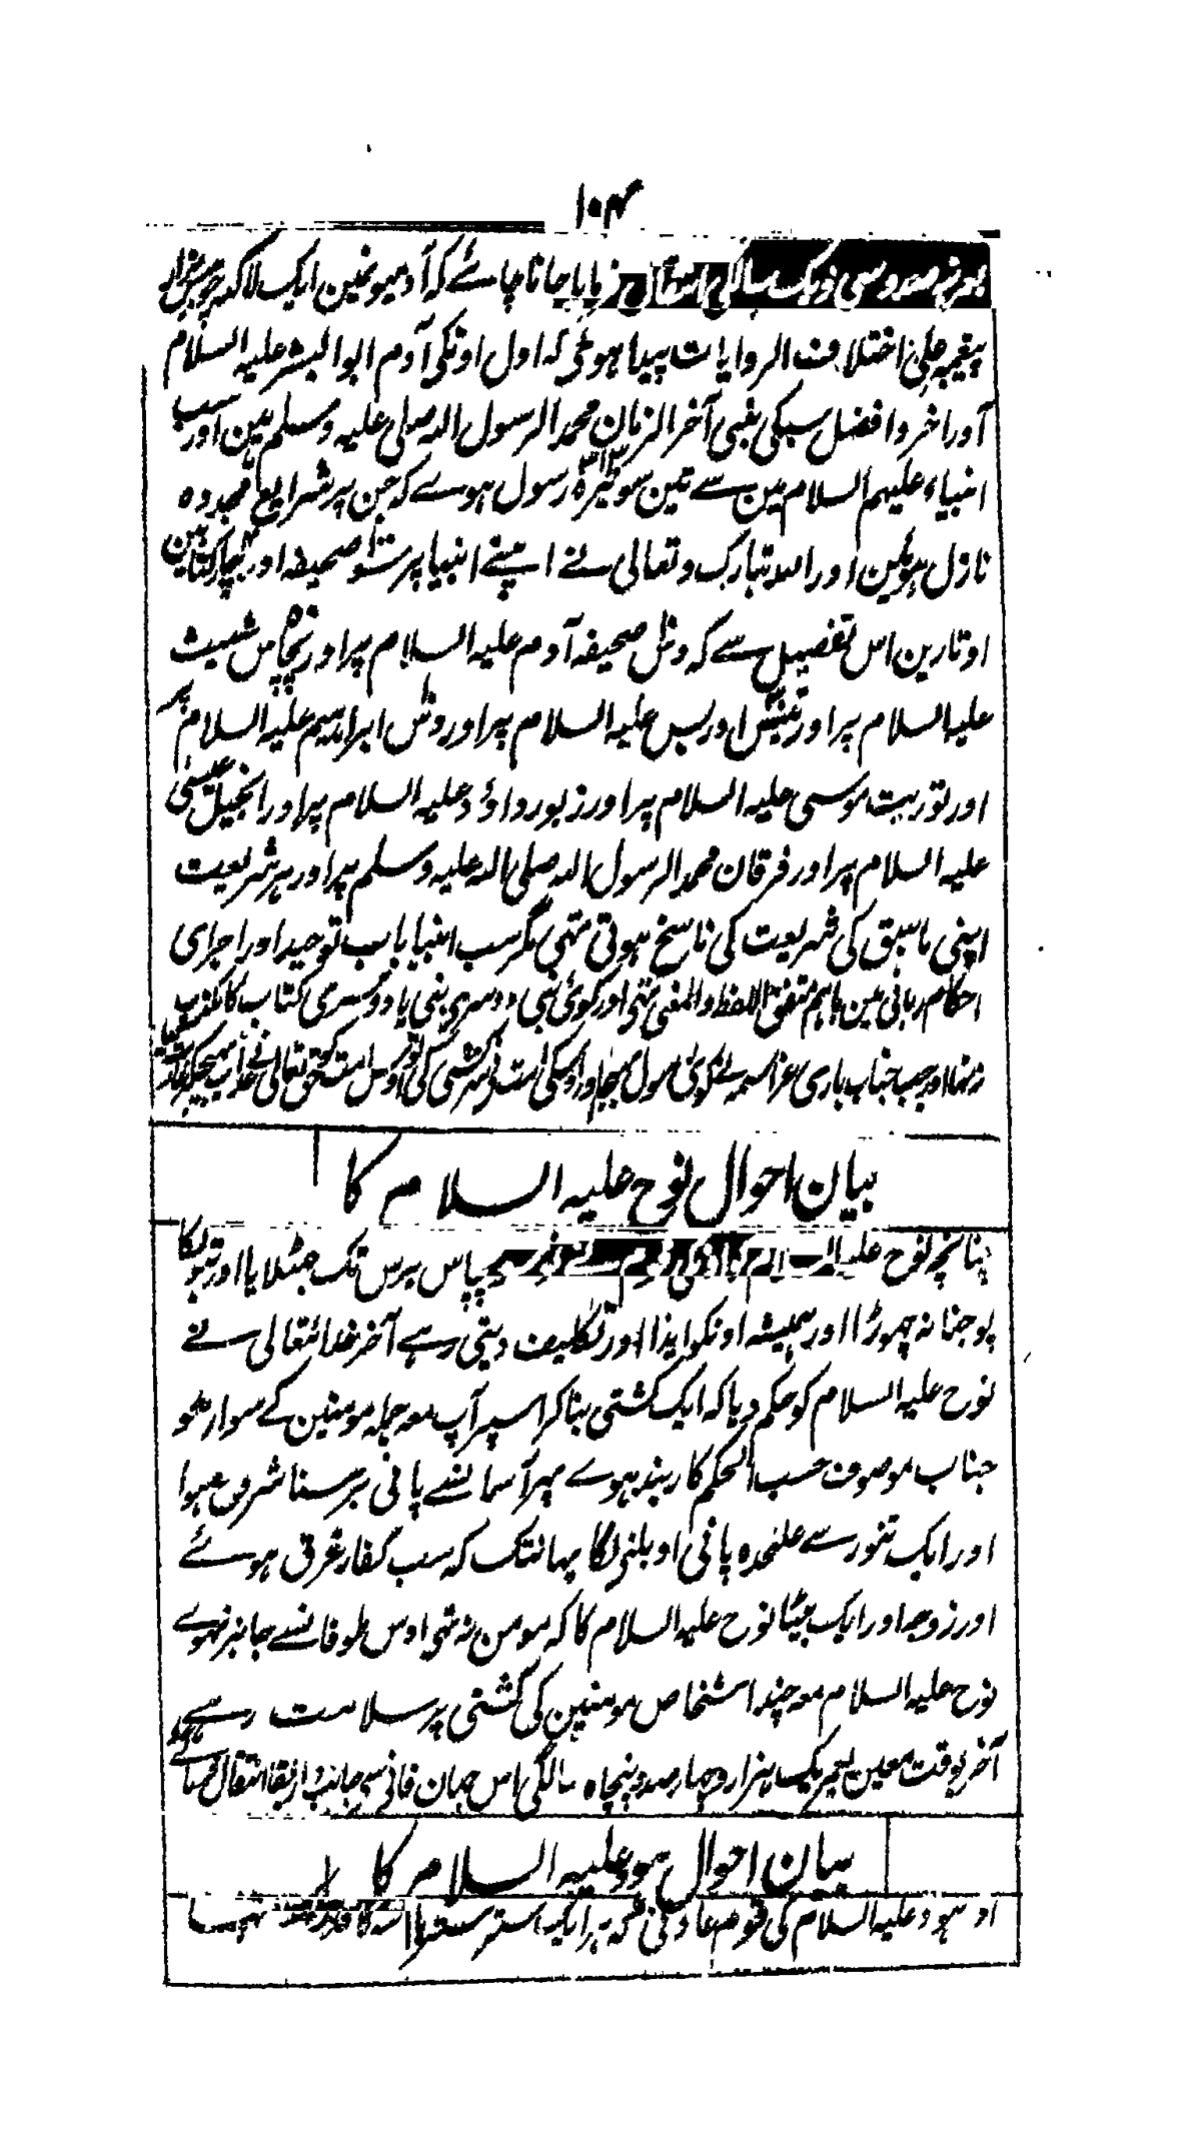 ۱۰۴
انتقال فرمایا جانا چاہئے کہ آدمیونمین ایک لاکہ چوبیس ہزار
پیغمبر علی اختلاف الروایات پیدا ہوئی کہ اول اونکی آدم ابوالبشر علیہ السلام
اور آخر و افضل سبکی نبی آخر الزمان محمد الرسول اللہ صلی علیہ وسلم ہین اور سب
انبیاء علیہم السلام مین سے تین سو تیرہ ۳۱۳ رسول ہوے کہ جن پر شرایع مجددہ
نازل ہوئین اور اللہ تبارک و تعالی نے اپنے انبیا پر سو صحیفہ اور چار کتابین
اوتارین اس تفصیل سے کہ دس صحیفہ آدم علیہ السلام پر اور پچاس شیث
علیہ السلام پر اور تیس ادریس علیہ السلام پر اور دس ابراہیم علیہ السلام پر
اور توریت موسی علیہ السلام پر اور زبور داؤد علیہ السلام پر اور انجیل عیسی
علیہ السلام پر اور فرقان محمد الرسول اللہ صلی اللہ علیہ وسلم پر اور ہر شریعت
اپنی ماسبق کی شریعت کی ناسخ ہوتی تہی مگر سب انبیا باب توحید اور اجرای
احکام ربانی مین باہم متفق اللفظ والمعنی تہی اور کوئی نبی دوسری نبی یا دوسری کتاب کا مکذب
نتہا اور جب جناب باری عز اسمہ نے کوئی رسول بہیجا اور اوسکی امت نے سرکشی کی تو اوس امت کو حق تعالی نے عذاب بہیجکر
بیان احوال نوح علیہ السلام کا
چنانچہ نوح علیہ السلام کا اونکی قوم نے نو سو پچاس برس تک جہٹلایا اور بتونکا
پوجنا نہ چہوڑا اور ہمیشہ اونکو ایذا اور تکلیف دیتی رہے آخر خدائتعالی نے
نوح علیہ السلام کو حکم دیا کہ ایک کشتی بنا کر اسپر آپ معہ جملہ مومنین کے سوار ہو
جناب موصوف حسب الحکم کاربند ہوے پہر آسمانسے پانی برسنا شروع ہوا
اور ایک تنور سے علٰحدہ پانی اوبلنے لگا یہانتک کہ سب کفار غرق ہوئے
اور زوجہ اور ایک بیٹا نوح علیہ السلام کا کہ مومن نہ تہی اوس طوفانسے جانبر نہوے
نوح علیہ السلام معہ چند اشخاص مومنین کی کشتی پر سلامت رہے
آخر بوقت معین بعمر یک ہزار و چہار صد و پنجاہ سالگی اس جہان فانی سے جانب دار بقا انتقال فرما گئے
بیان احوال ہود علیہ السلام کا
اور ہود علیہ السلام کی قوم عاد تہی کہ ہر ایک ستر ستر